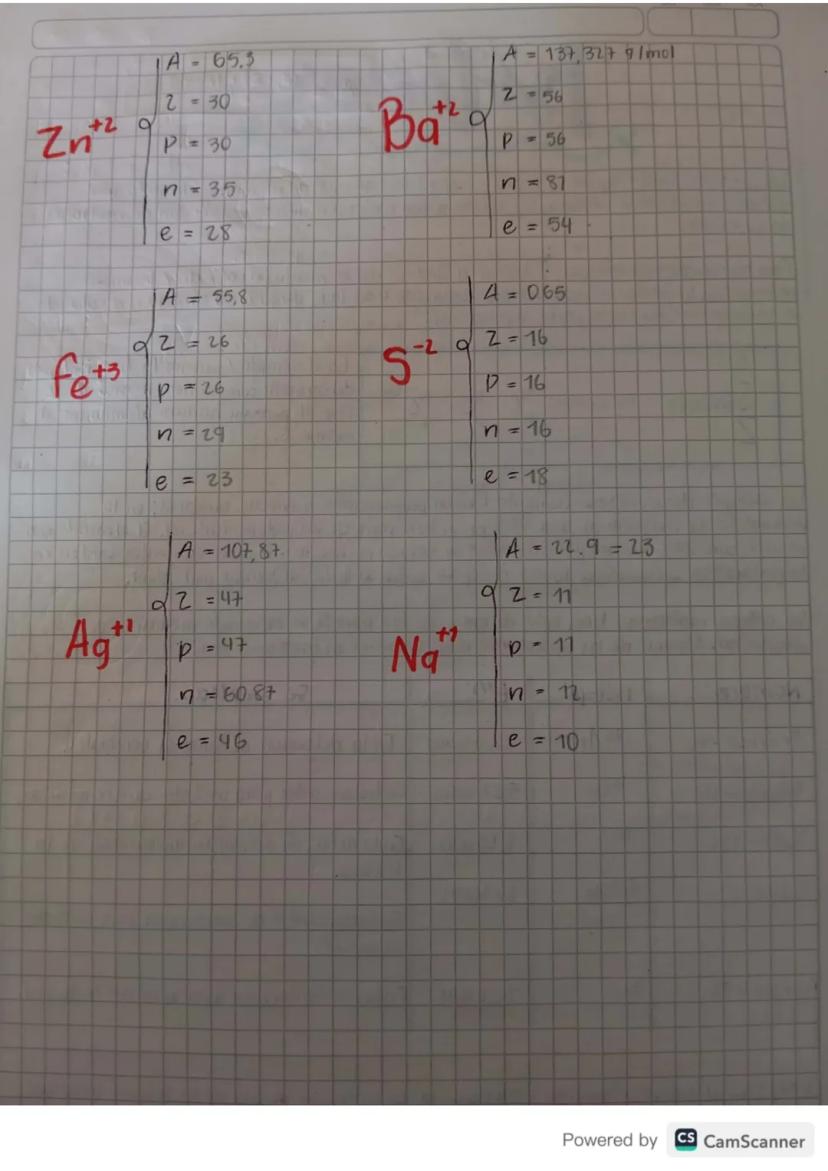 Zn+2
A = 65.3
Z = 30
P = 30
n = 35
e = 28
Ba+2
A = 137,327 g/mol
Z = 56
P = 56
n = 81
e = 54
Fe+3
A = 55,8
Z = 26
p = 26
n = 29
e = 23
S-2
A = 065
Z = 16
P = 16
n = 16
e = 18
Ag+1
A = 107,87
Z = 47
p = 47
n = 60.87
e = 46
Na+1
A = 22.9 = 23
Z = 11
p = 11
n = 12
e = 10
Powered by CS CamScanner